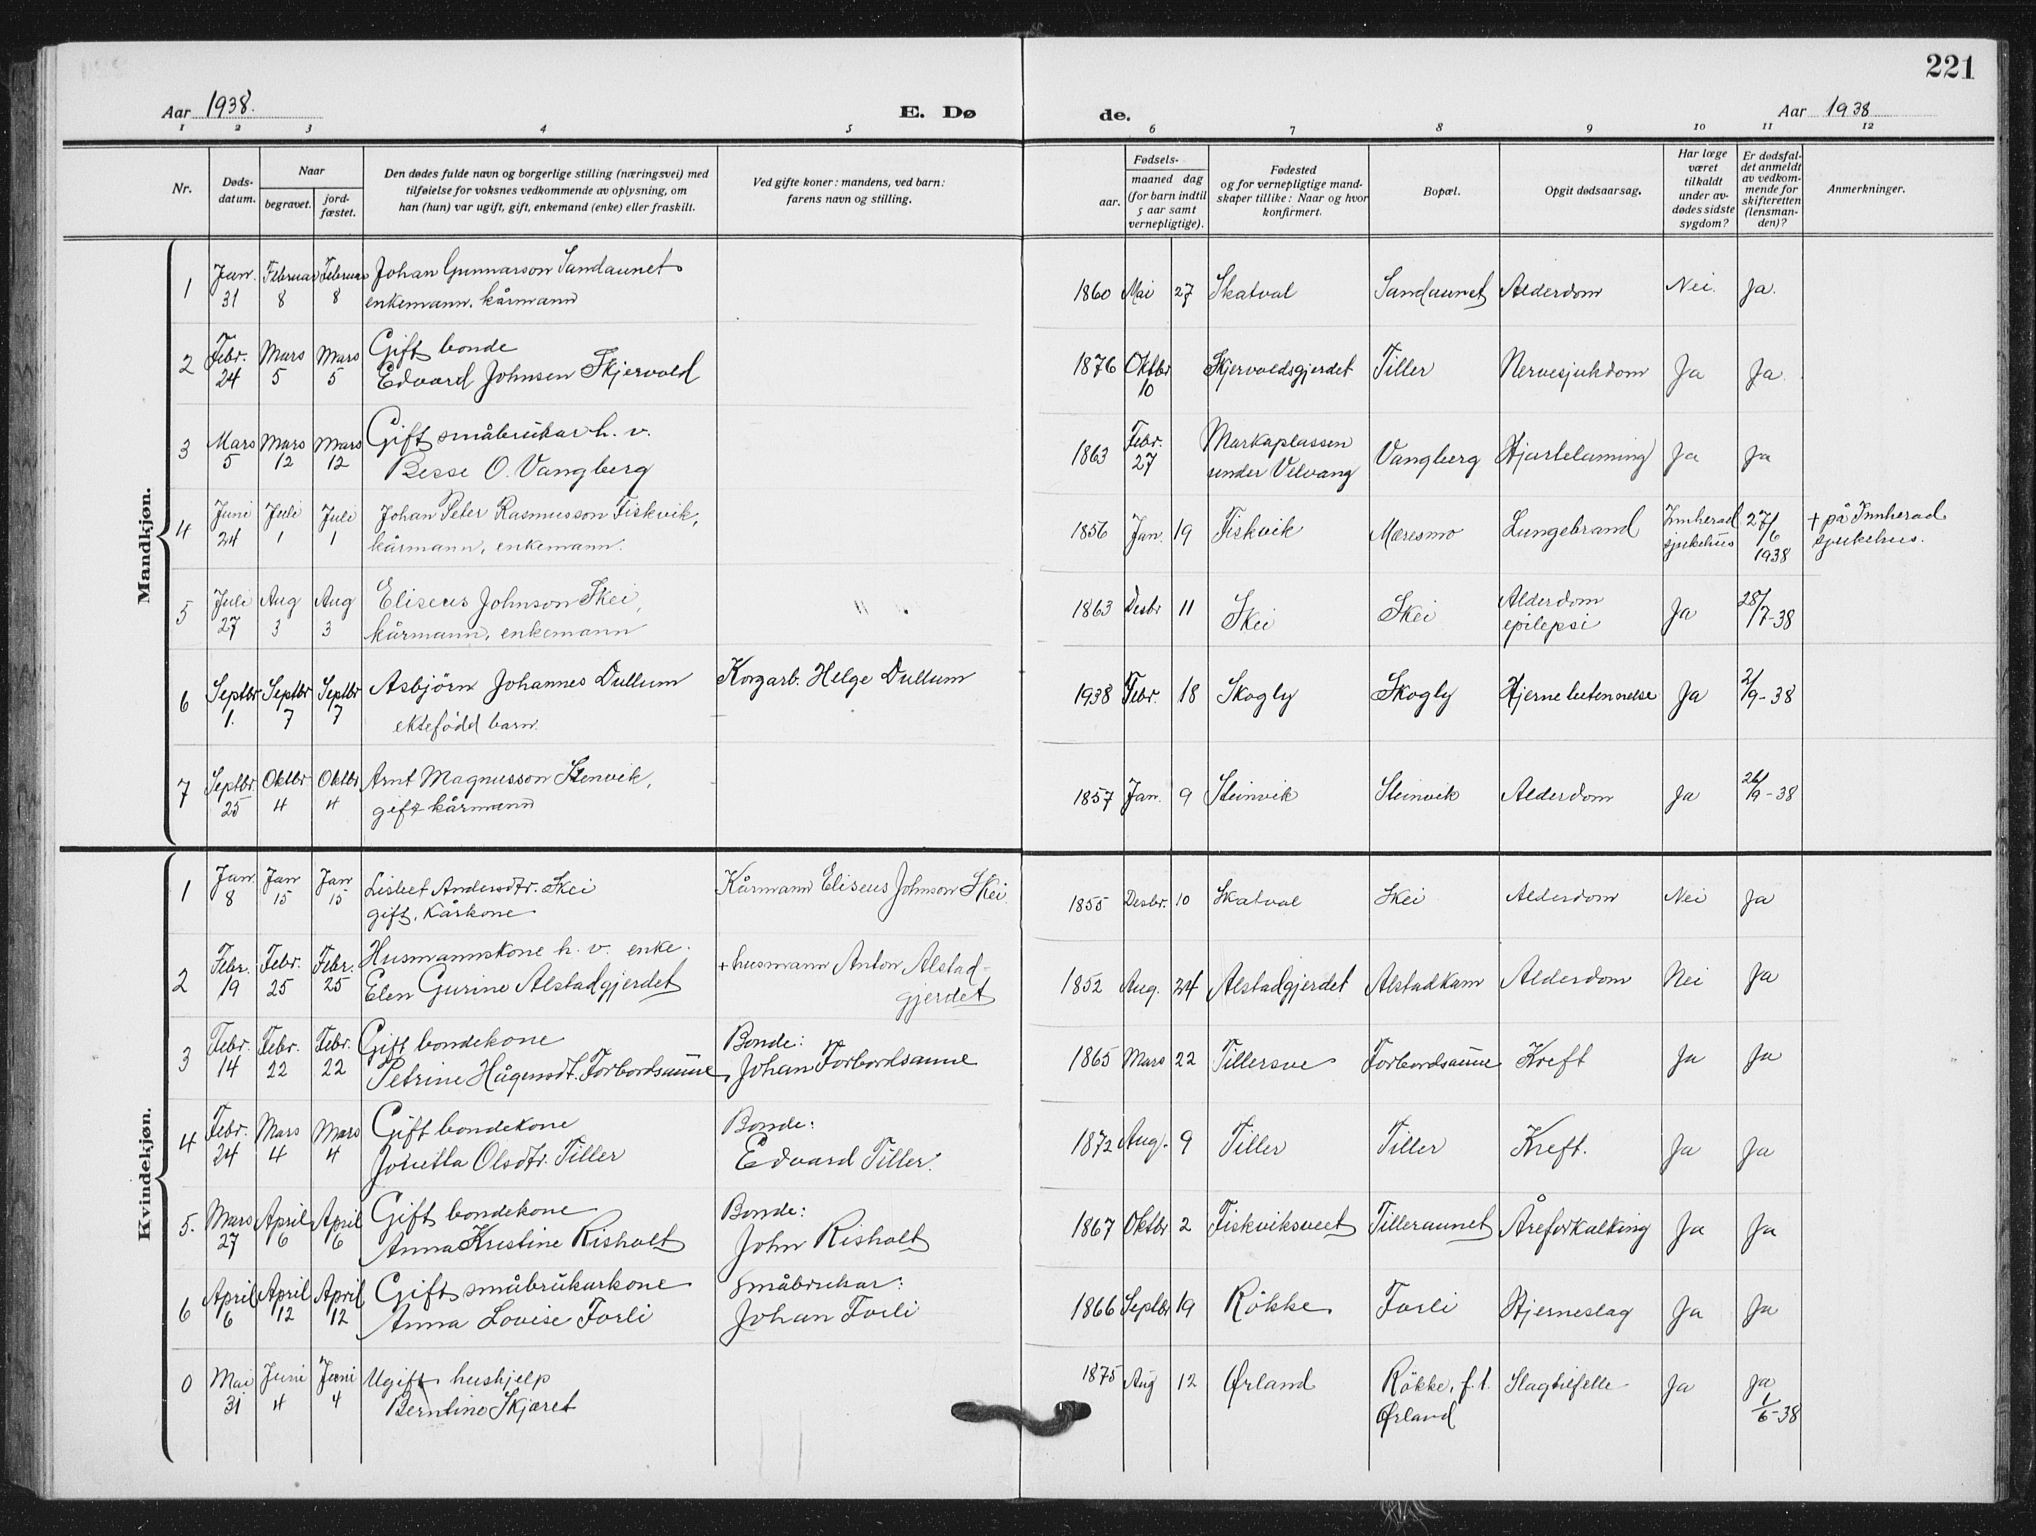 221
Aar 1938.
E. Dø
de.
Aar 1938
1 2 3 4 5 6 7 8 9 10 11 12
Nr.
Døds-
datum.
Naar
begravet.
jord-
fæstet.
Den dødes fulde navn og borgerlige stilling (næringsvei) med
tilføielse for voksnes vedkommende av oplysning, om
han (hun) var ugift, gift, enkemand (enke) eller fraskilt.
Ved gifte koner: mandens, ved barn:
farens navn og stilling.
Fødsels-
aar.
maaned dag
(for barn indtil
5 aar samt
vernepligtige).
Fødested
og for vernepligtige mand-
skaper tillike: Naar og hvor
konfirmert.
Bopæl.
Opgit dødsaarsag.
Har læge
været
tilkaldt
under av-
dødes sidste
sygdom?
Er dødsfal-
det anmeldt
av vedkom-
mende for
skifteretten
(lensman-
den)?
Anmerkninger.
Mandkjøn.
1 Jan. 31 Februar 8 Februar 8 Johan Gunnarson Sandaunet
enkemann. kårmann
1860 Mai 27 Skatval Sandaunet Alderdom Nei. Ja.
2 Febr. 24 Mars 5 Mars 5 Gift bonde
Edvard Johnsen Skjervold
1876 Oktbr 10 Skjervoldsgjerdet Tiller Nervesjukdom Ja Ja.
3 Mars 5 Mars 12 Mars 12 Gift småbrukar h. v.
Besse O. Vangberg
1863 Febr. 27 Markaplassen
under Velvang Vangberg Hjartelaming Ja Ja
4 Juni 24 Juli 1 Juli 1 Johan Peter Rasmusson Fiskvik,
kårmann, enkemann.
1856 Jan. 19 Fiskvik Mæresmo Lungebrand Innherad
sjukehus 27/6
1938 + på Innherad
sjukehus.
5 Juli 27 Aug 3 Aug 3 Eliseus Johnson Skei,
kårmann, enkemann
1863 Desbr 11 Skei Skei Alderdom
epilepsi Ja 28/7-38
6 Septbr 1. Septbr 7 Septbr 7 Asbjörn Johannes Dullum
ektefödd barn.
Korgarb. Helge Dullum
1938 Febr. 18 Skogly Skogly Hjernebetennelse Ja 2/9-38
7 Septbr. 25 Oktbr 4 Oktbr 4 Arnt Magnusson Stenvik,
gift kårmann
1857 Jan. 9 Steinvik Steinvik Alderdom Ja 26/9-38
Kvindekjøn.
1 Jan. 8 Jan 15 Jan 15 Lisbet Andersdtr. Skei
gift. Kårkone
Kårmann Eliseus Johnson Skei.
1855 Desbr. 10 Skatval Skei Alderdom Nei Ja
2 Febr. 19 Febr. 25 Febr. 25 Husmannskone h. v. enke.
Elen Gurine Alstadgjerdet
+ husmann Anton Alstad-
gjerdet
1852 Aug. 24 Alstadgjerdet Alstadkam Alderdom Nei Ja
3 Febr. 14 Febr. 22 Febr. 22 Gift bondekone
Petrine Hågensdt. Forbordsaune
Bonde:
Johan Forbordsaune
1865 Mars 22 Tillersve Forbordsaune Kreft Ja Ja
4 Febr. 24 Mars 4 Mars 4 Gift bondekone
Olsdtr. Tiller
Bonde:
Edvard Tiller.
1872 Aug. 9 Tiller Tiller Kreft. Ja Ja
5. Mars 27 April 6 April 6 Gift bondekone
Anna Kristine Risholt
Bonde:
John Risholt
1867 Oktbr 2 Fiskviksveet Tilleraunet Åreforkalking Ja Ja
6 April 6 April 12 April 12 Gift småbrukarkone
Anna Lovise Forli
Småbrukar:
Johan Forli
1866 Septbr 19 Rökke Forli Hjerneslag Ja Ja
0 Mai 31 Juni 4 Juni 4 Ugift hushjelp
Berntine Skjæret
1875 Aug 12 Ørland Rökke, f. t.
Ørland Slagtilfelle Ja Ja
1/6-38